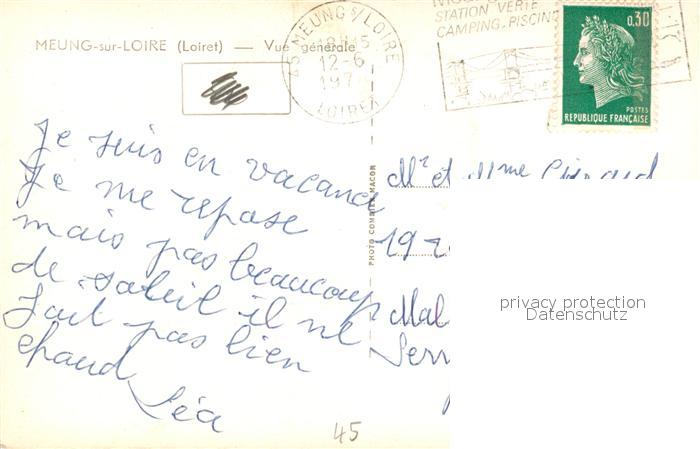 MEUNG-sur-LOIRE (Loiret) — Vue générale
45 MEUNG S/ LOIRE
12-6
LOIRET
STATION VERTE
CAMPING. PISCINE
0,30
POSTES
REPUBLIQUE FRANÇAISE
Je suis en vacance
Je me repose
mais pas beaucoup
de soleil il ne
fait pas bien
chaud
Léa
PHOTO COMBIER MACON
Mr et Mme
privacy protection
Datenschutz
45